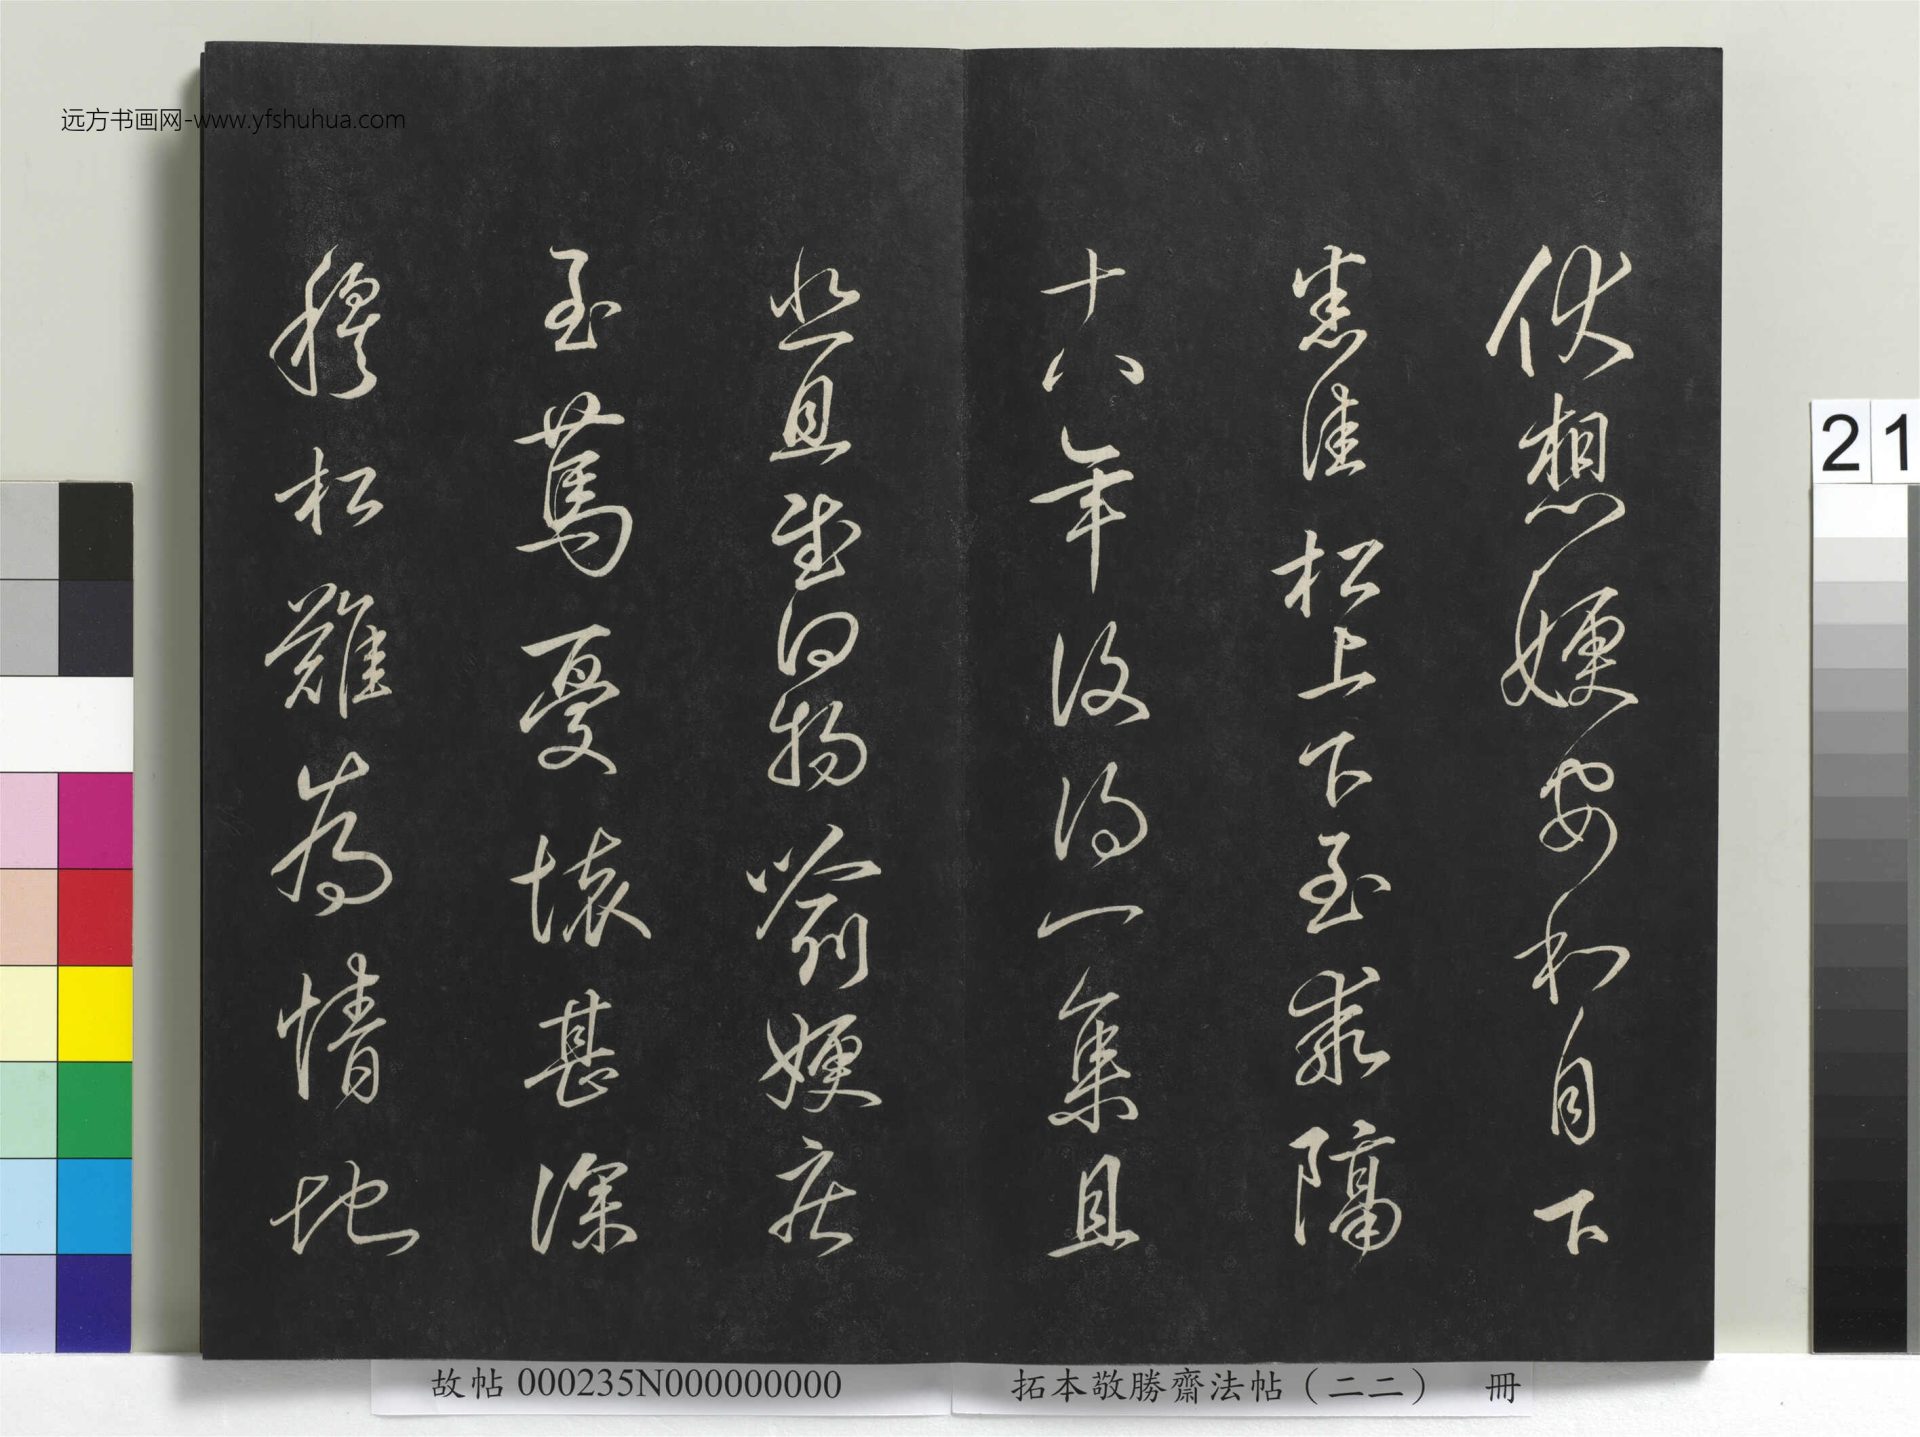 远方书画网-www.yfshuhua.com
伏想嫂安和自下
悉佳松上下至乖隔
十八年復得一集且
悲且慰何物喻嫂疾
至篤憂懷甚深
穆松難為情地
21
故帖 000235N000000000
拓本敬勝齋法帖（二二） 冊